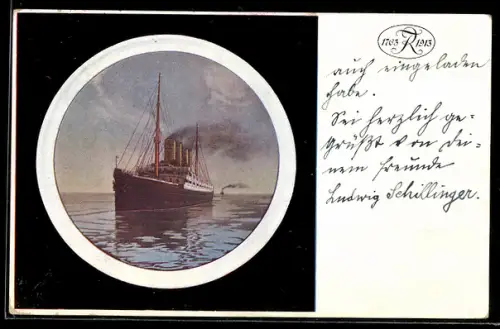 1763 R 1913
auch eingeladen
habe.
Sei herzlich ge-
grüßt von dei-
nem Freunde
Ludwig Schillinger.